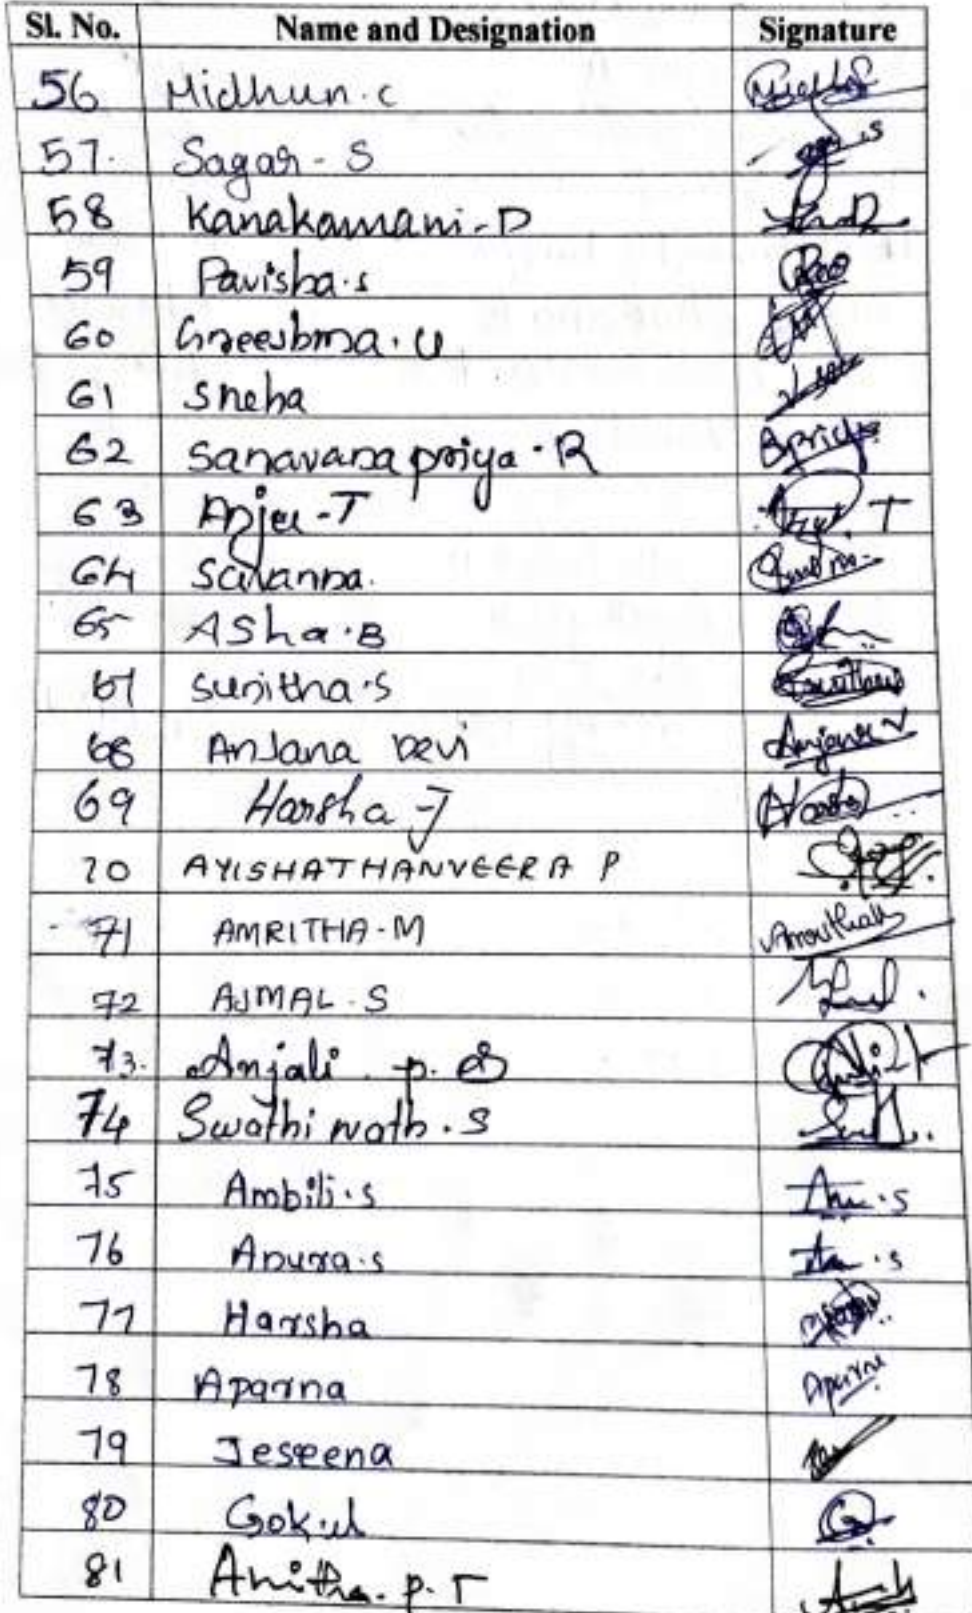 Sl. No. Name and Designation Signature
56 Midhun.c
57. Sagar - S
58 Kanakamani - D
59 Pavisha.s
60 Greeshma. U
61 Sneha
62 Saravana priya. R Spriya
63 Anju - T
64 Saranna.
65 ASha.B
67 Sunitha.s Sunitha
68 Anjana Devi Anjana
69 Harsha - J Harsha
70 AYISHATHANVEERA P
71 AMRITHA - M
72 AJMAL . S
73. Anjali . p.
74 Swathi nath . S
75 Ambili.s
76 Anura.s
77 Harsha
78 Aparna Aparna
79 Jeseena
80 Gokul
81 Anitha. p. T